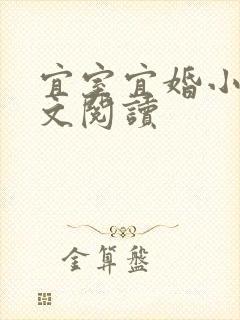 宜室宜婚小
文閱讀
金算盤